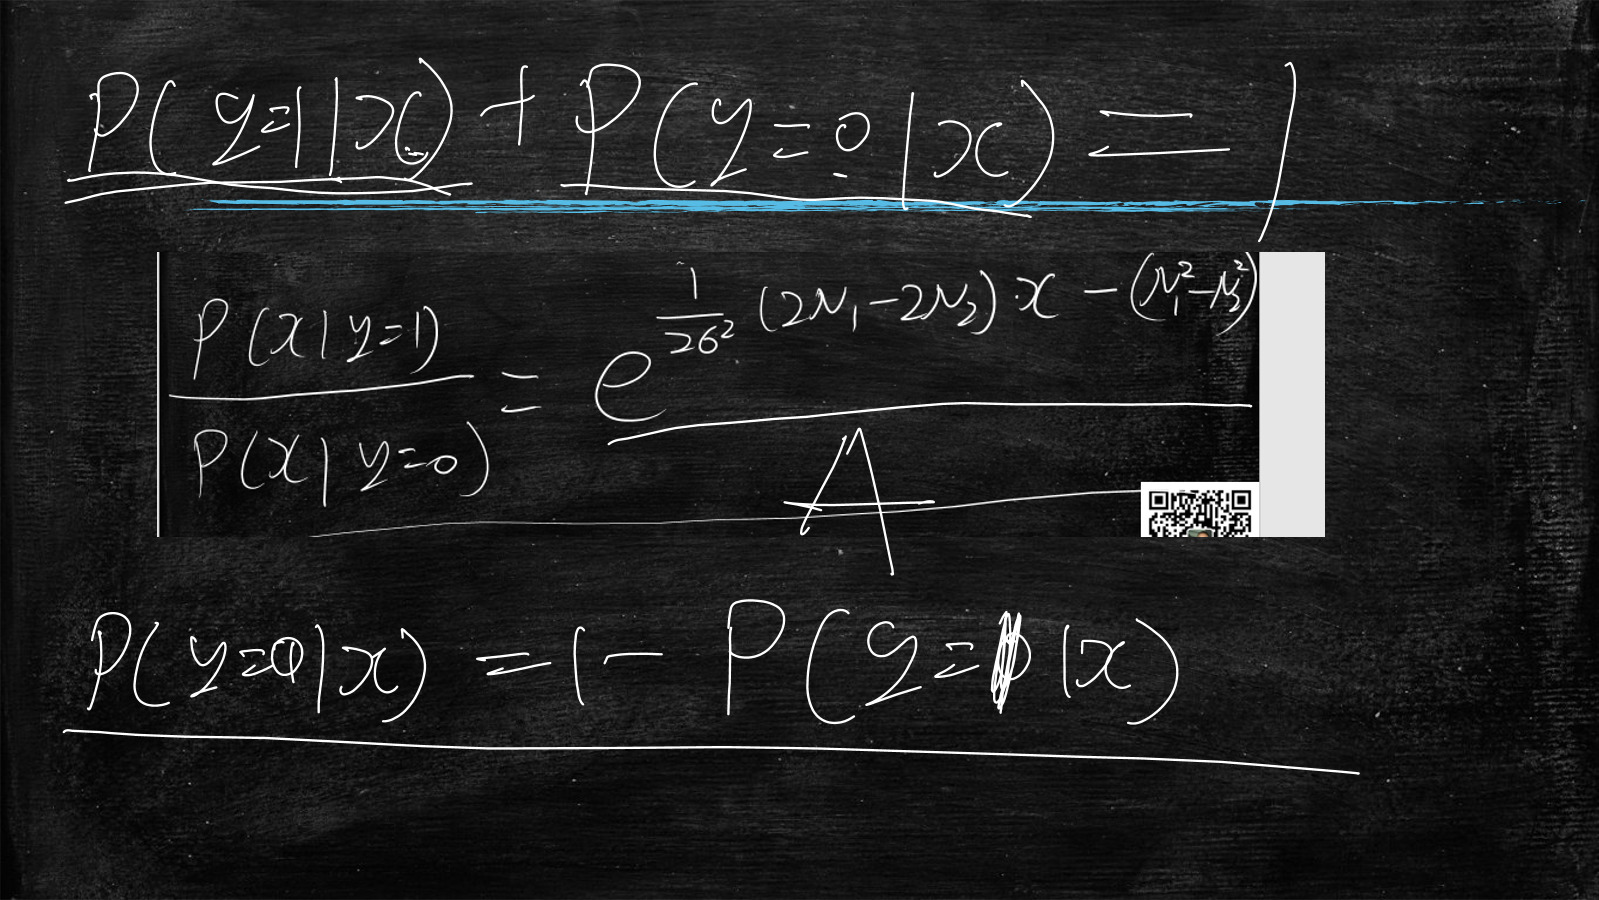 P(y=1|x) + P(y=0|x) = 1
P(x|y=1) / P(x|y=0) = e^{1/2σ² (2μ₁-2μ₂)·x - (μ₁²-μ₂²)}
A
P(y=0|x) = 1 - P(y=1|x)